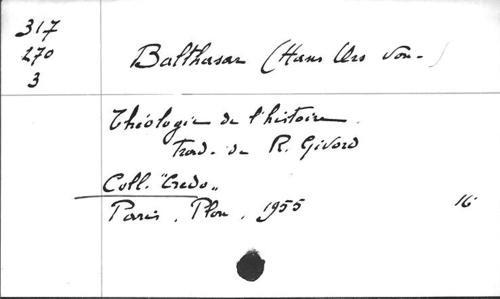 317
270
3
Balthasar (Hans Urs von-)
Théologie de l'histoire.
Trad. de R. Givord
Coll. "Credo"
Paris, Plon, 1955 16